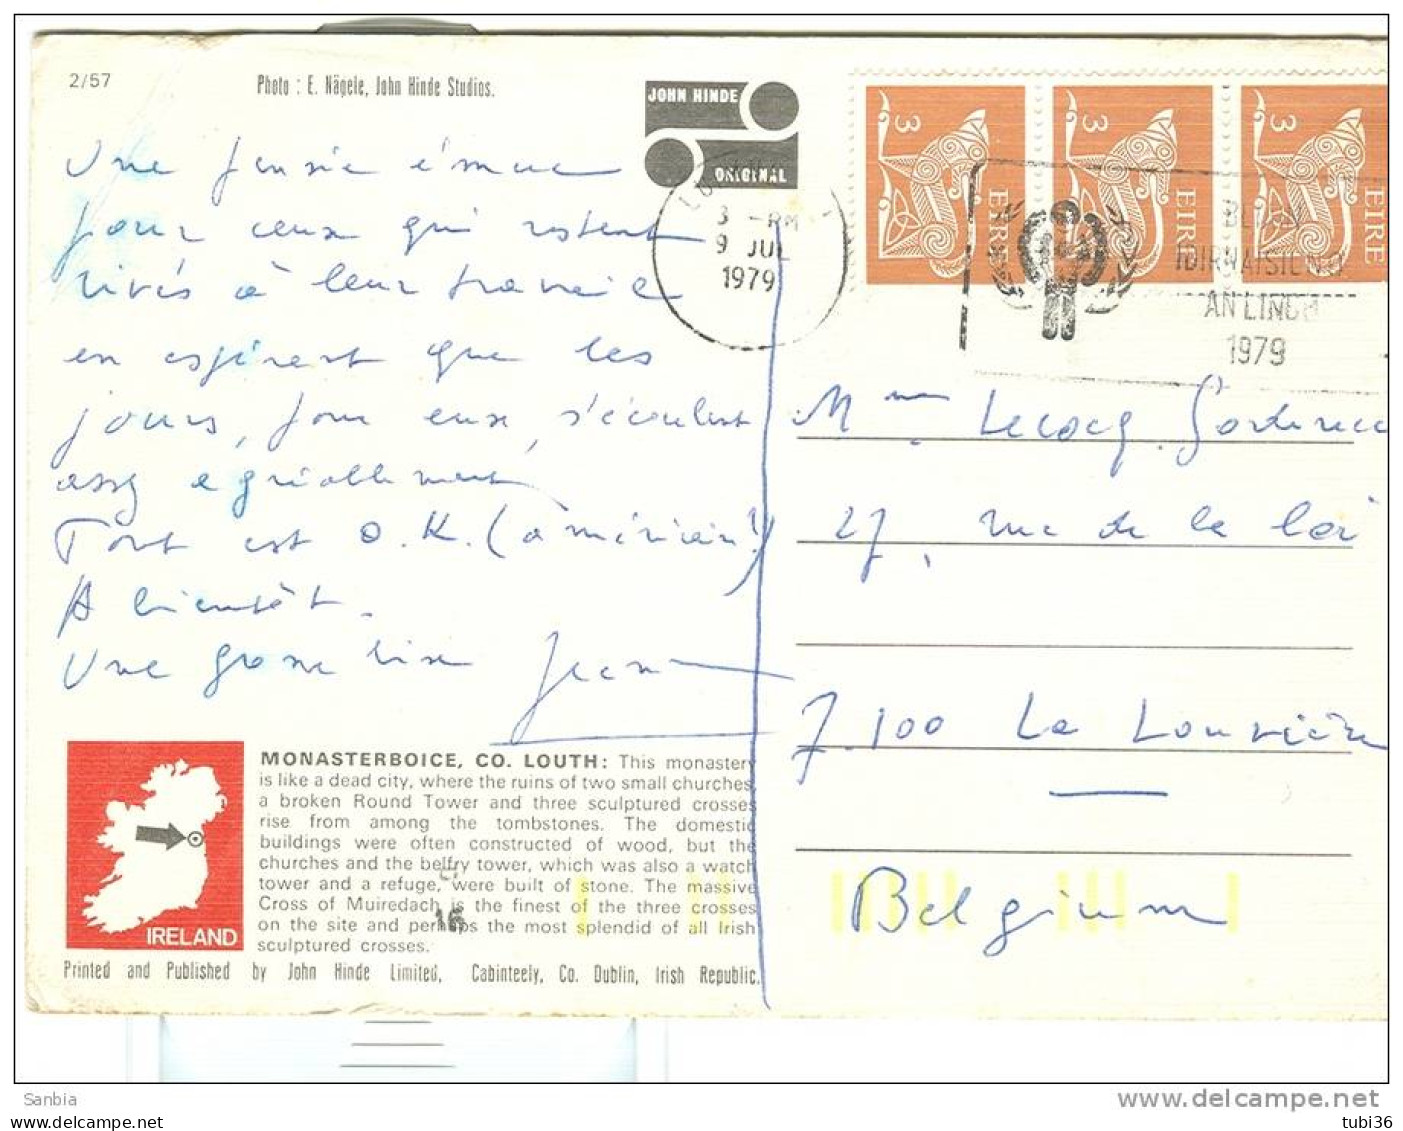 2/57
Photo : E. Nägele, John Hinde Studios.
JOHN HINDE
ORIGINAL
Une pensée émue
pour ceux qui restent
rivés à leur travail
en espérant que les
jours, pour eux, s'écoulent
assez agréablement
Tout est O.K. (américain!)
A bientôt.
Une grosse bise Jean
3 -PM
9 JUL
1979
3 EIRE
3 EIRE
3 EIRE
IDIRNAISIÚNTA
AN LINBH
1979
Mme Lecocq
27, rue de la Loi
7.100 La Louvière
Belgium
MONASTERBOICE, CO. LOUTH: This monastery
is like a dead city, where the ruins of two small churches,
a broken Round Tower and three sculptured crosses
rise from among the tombstones. The domestic
buildings were often constructed of wood, but the
churches and the belfry tower, which was also a watch
tower and a refuge, were built of stone. The massive
Cross of Muiredach is the finest of the three crosses
on the site and perhaps the most splendid of all Irish
sculptured crosses.
16
IRELAND
Printed and Published by John Hinde Limited, Cabinteely, Co. Dublin, Irish Republic.
Sanbia
delcampe.net
www.delcampe.net
tubi36